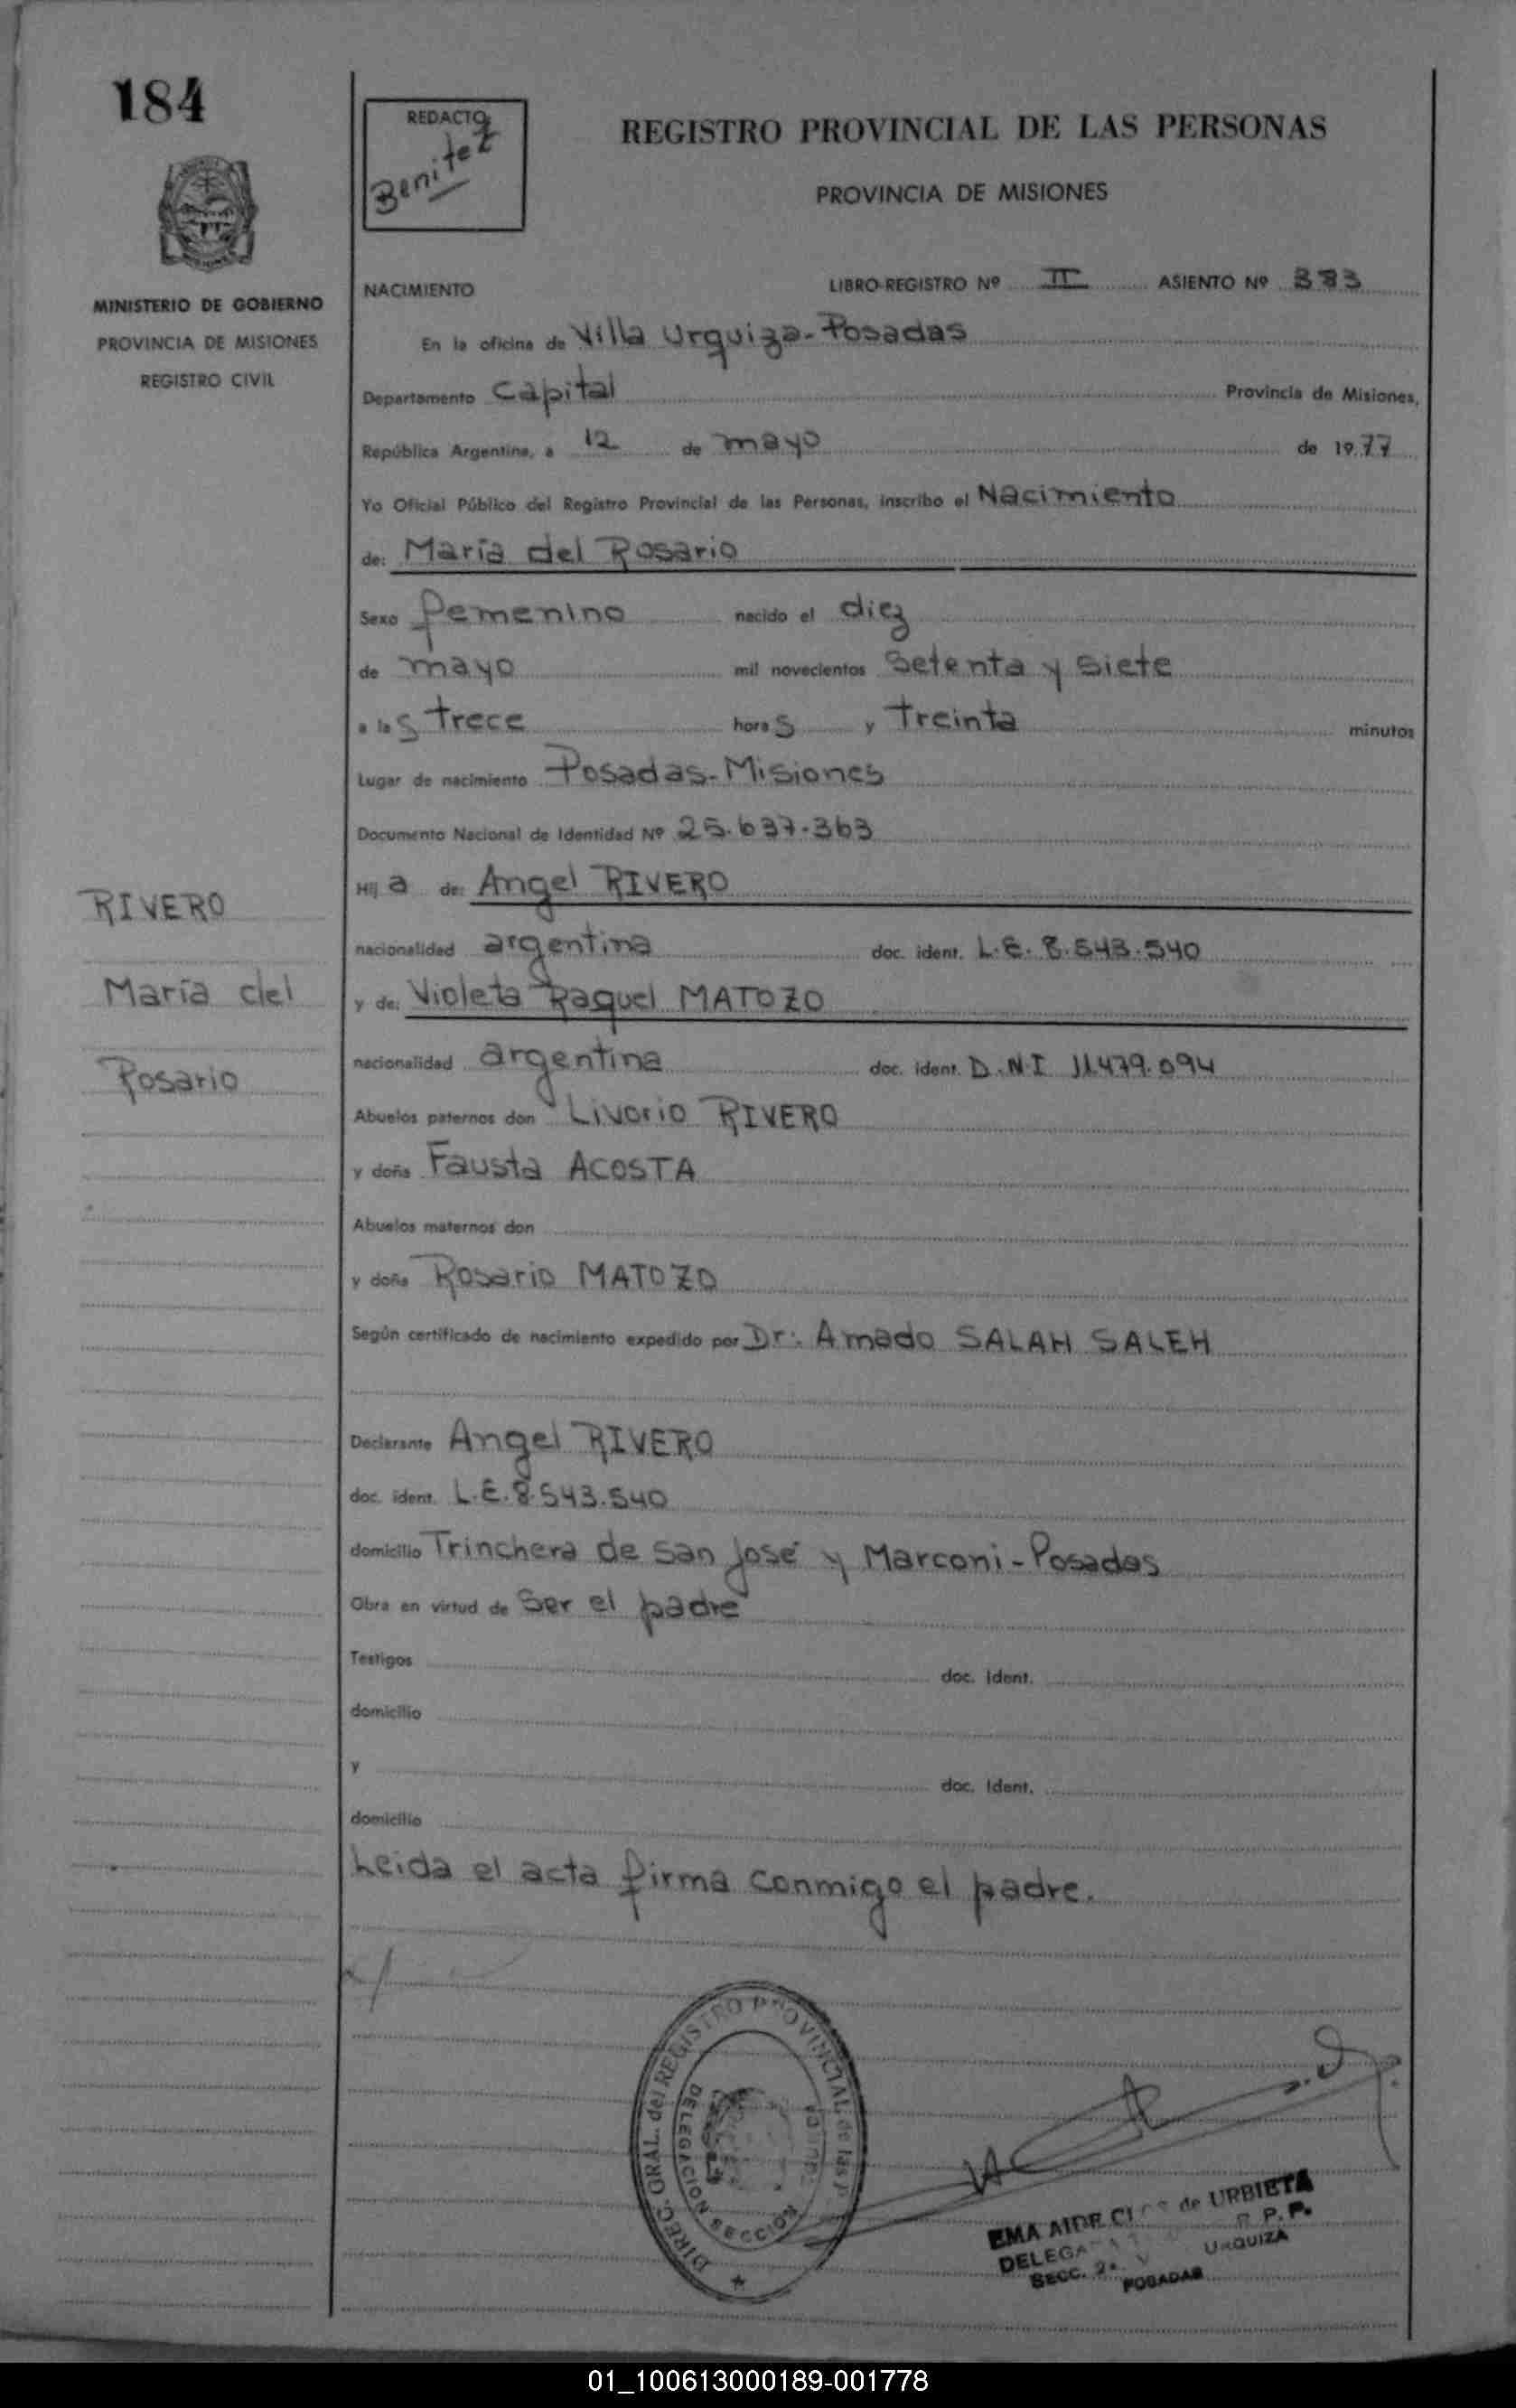 184
MINISTERIO DE GOBIERNO
PROVINCIA DE MISIONES
REGISTRO CIVIL
RIVERO
María del
Rosario
REDACTO
Benitez
REGISTRO PROVINCIAL DE LAS PERSONAS
PROVINCIA DE MISIONES
NACIMIENTO LIBRO-REGISTRO Nº II ASIENTO Nº 383
En la oficina de Villa Urquiza-Posadas
Departamento Capital Provincia de Misiones,
República Argentina, a 12 de mayo de 1977
Yo Oficial Público del Registro Provincial de las Personas, inscribo el Nacimiento
de: María del Rosario
Sexo femenino nacido el diez
de mayo mil novecientos setenta y siete
a las trece horas y treinta minutos
Lugar de nacimiento Posadas-Misiones
Documento Nacional de Identidad Nº 25.637.363
Hija de: Angel RIVERO
nacionalidad argentina doc. ident. L.E. 8.543.540
y de: Violeta Raquel MATOZO
nacionalidad argentina doc. ident. D.N.I 11.479.094
Abuelos paternos don Livorio RIVERO
y doña Fausta ACOSTA
Abuelos maternos don
y doña Rosario MATOZO
Según certificado de nacimiento expedido por Dr: Amado SALAH SALEH
Declarante Angel RIVERO
doc. ident. L.E. 8.543.540
domicilio Trinchera de San José y Marconi-Posadas
Obra en virtud de ser el padre
Testigos doc. ident.
domicilio
y doc. ident.
domicilio
Leida el acta firma conmigo el padre.
DIREC. GRAL. del REGISTRO PROVINCIAL de las P
DELEGACION SECCION
EMA AIDE de URBIETA
DELEGA P.P.
SECC. 2ª URQUIZA
POSADAS
01_100613000189-001778